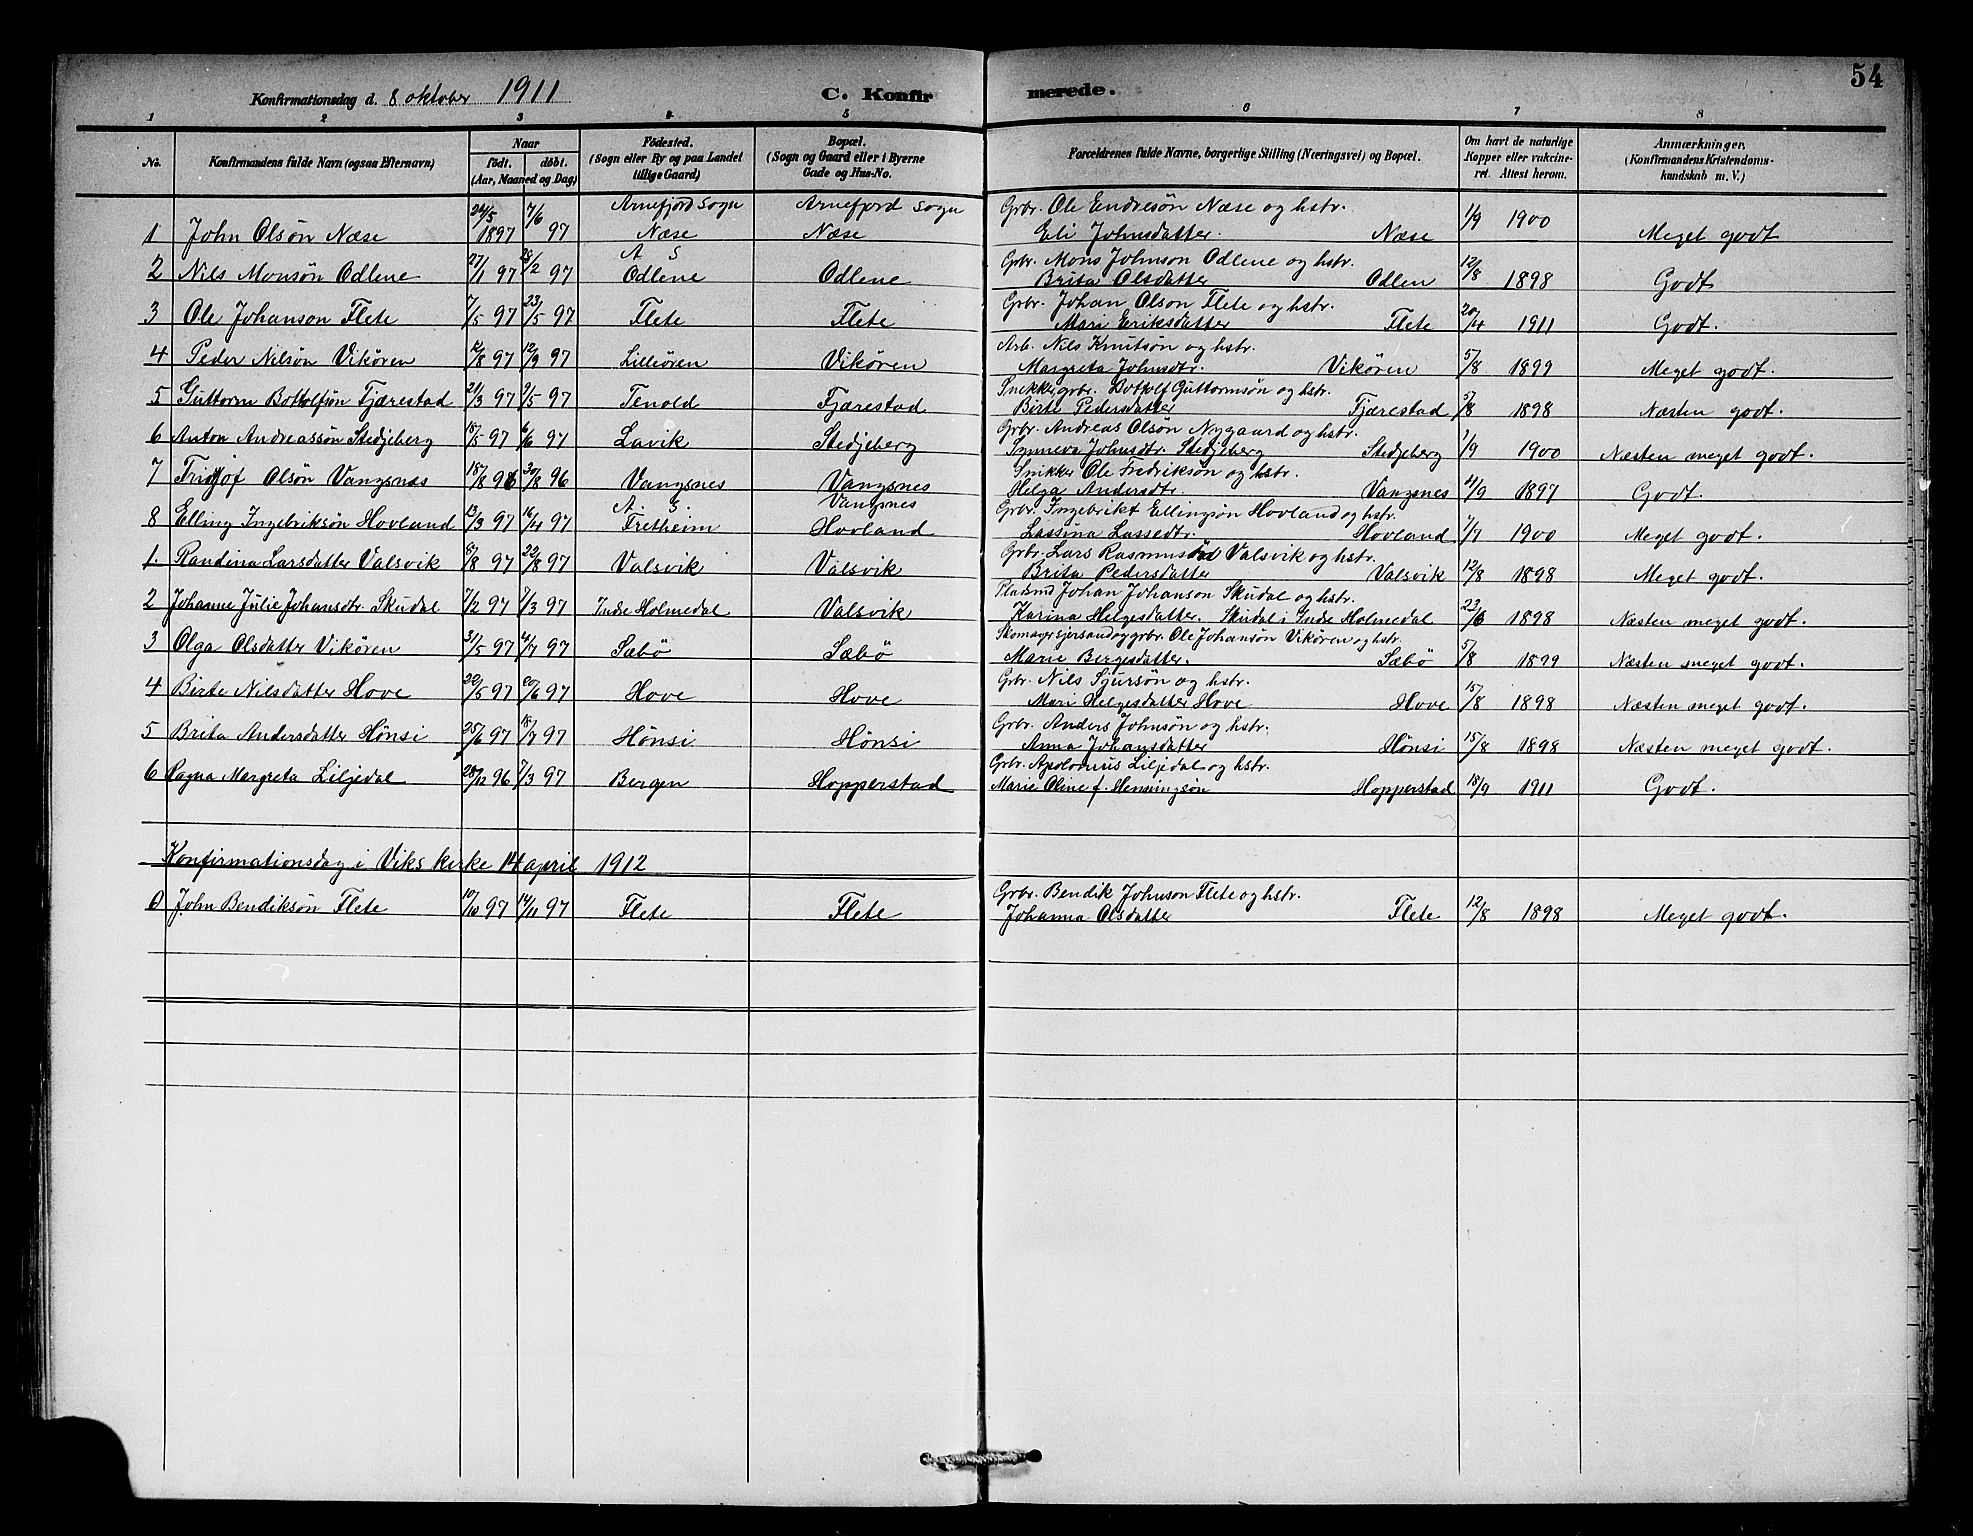 54
Konfirmationsdag d. 8 oktober 1911 C. Konfirmerede.
1 2 3 4 5 6 7 8
No. Konfirmandens fulde Navn (ogsaa Efternavn) Naar födt. döbt. (Aar, Maaned og Dag) Födested. (Sogn eller By og paa Landet tillige Gaard) Bopæl. (Sogn og Gaard eller i Byerne Gade og Hus-No. Forældrenes fulde Navne, borgerlige Stilling (Næringsvei) og Bopæl. Om havt de naturlige Kopper eller vakcineret. Attest herom. Anmærkninger. (Konfirmandens Kristendomskundskab m. V.)
24/5 7/6 Arnefjord sogn Arnefjord sogn Grbr. Ole Endresön Næse og hstr.
1 John Olsön Næse 1897 97 Næse Næse Eli Johnsdatter. Næse 1/9 1900 Meget godt
A S Grbr. Mons Johnson Odlene og hstr.
2 Nils Monsön Odlene 27/1 97 28/2 97 Odlene Odlene Brita Olsdatter Odlen 12/8 1898 Godt
Grbr. Johan Olson Flete og hstr.
3 Ole Johanson Flete 7/5 97 23/5 97 Flete Flete Mari Eriksdatter Flete 20/4 1911 Godt.
Arb. Nils Knutsön og hstr.
4 Peder Nilsön Vikören /8 97 12/9 97 Lilleören Vikören Margreta Johnsdtr. Vikören 5/8 1899 Meget godt.
Snekker, grbr. Botolf Guttormsön og hstr.
5 Guttorm Bottolfsön Fjærestad 21/3 97 9/5 97 Tenold Fjærestad Birte Pedersdatter Fjærestad 5/8 1898 Næsten godt.
Grbr. Andreas Olsön Nygaard og hstr.
6 Anton Andreassön Stedjeberg 18/5 97 6/6 97 Lavik Stedjeberg Synneva Johnsdtr. Stedjeberg Stedjeberg 1/9 1900 Næsten meget godt.
Snikker Ole Fredriksön og hstr.
7 Fritjof Olsön Vangsnæs 18/8 96 30/8 96 Vangsnes Vangsnes Helga Andersdtr. Vangsnes /9 1897 Godt.
A. S. Vangsnes Grbr. Ingebrikt Ellingsön Hovland og hstr.
8 Elling Ingebriksön Hovland 13/3 97 16/4 97 Fretheim Hovland Lassina Lassedtr. Hovland 1/7 1900 Meget godt.
Grbr. Lars Rasmusön Valsvik og hstr.
1. Randina Larsdatter Valsvik 8/8 97 22/8 97 Valsvik Valsvik Brita Pedersdatter Valsvik 12/8 1898 Meget godt.
Pladsmd Johan Johanson Skudal og hstr.
2 Johanne Julie Johansdtr. Skudal 7/2 97 7/3 97 Indre Holmedal Valsvik Karina Helgesdatter. Skudal i Indre Holmedal 23/6 1898 Næsten meget godt.
Skomagersjersand og grbr. Ole Johansön Vikören og hstr.
3 Olga Olsdatter Vikören 31/5 97 4/7 97 Sæbö Sæbö Marie Bergesdatter. Sæbö 5/8 1899 Næsten meget godt.
Grbr. Nils Sjursön og hstr.
4 Birte Nilsdatter Hove 22/5 97 20/6 97 Hove Hove Mari Helgesdatter Hove Hove 15/8 1898 Næsten meget godt.
Grbr. Anders Johnsön og hstr.
5 Brita Andersdatter Hönsi 25/6 97 18/7 97 Hönsi Hönsi Anna Johansdatter Hönsi 15/8 1898 Næsten meget godt.
Grbr. Apolonius Liljedal og hstr.
6 Ragna Margreta Liljedal 28/12 96 7/3 97 Bergen Hopperstad Marie Oline f. Henningsön Hopperstad 18/9 1911 Godt.
Konfirmationsdag i Viks kirke 14 april 1912
Grbr. Bendik Johnson Flete og hstr.
0 John Bendiksön Flete 10/10 97 14/11 97 Flete Flete Johanna Olsdatter Flete 12/8 1898 Meget godt.